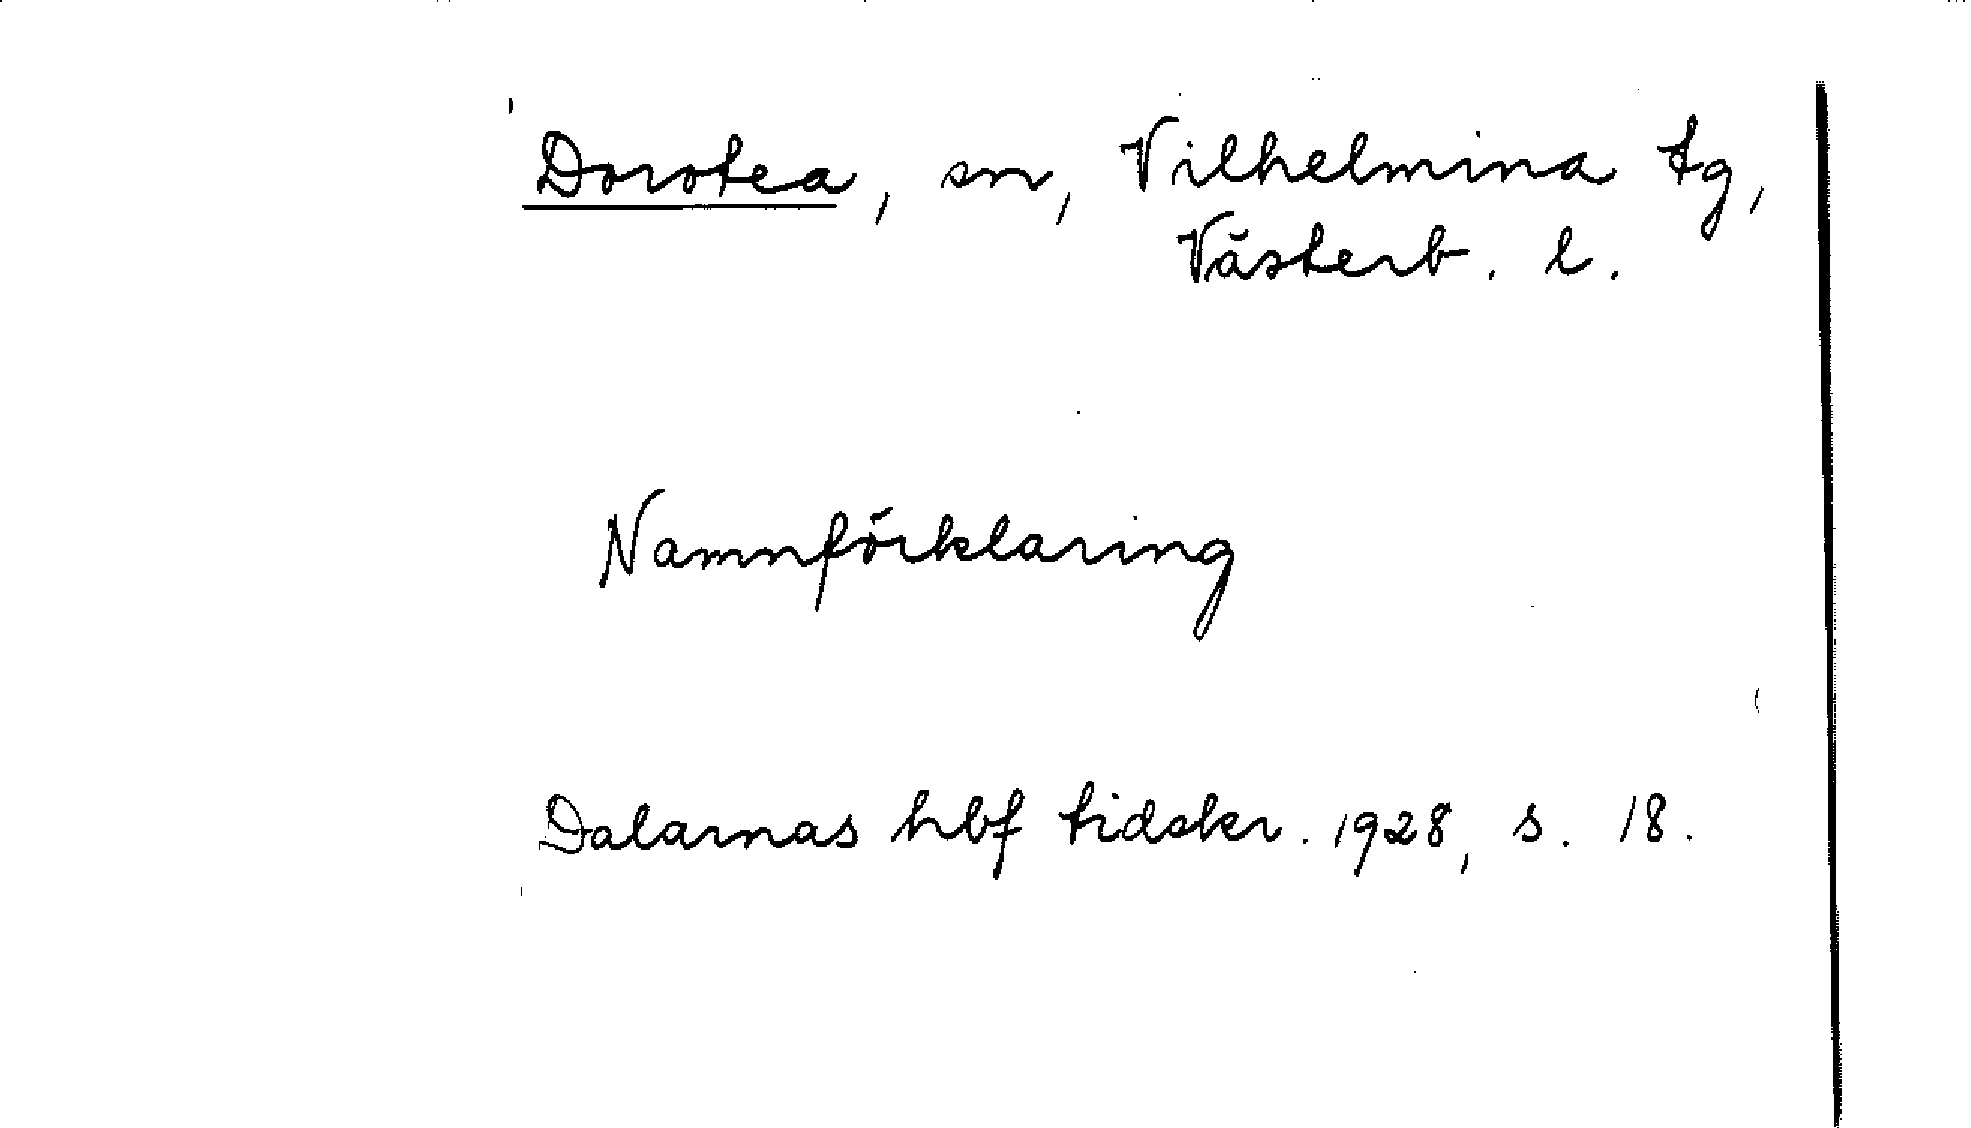 Dorotea, sn, Vilhelmina tg,
Västerb. l.
Namnförklaring
Dalarnas hbf tidskr. 1928, s. 18.